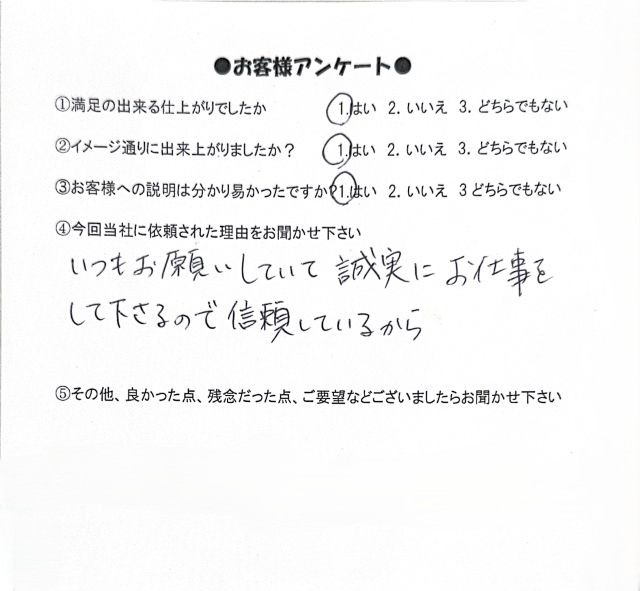 ●お客様アンケート●
①満足の出来る仕上がりでしたか 1.はい 2.いいえ 3.どちらでもない
②イメージ通りに出来上がりましたか？ 1.はい 2.いいえ 3.どちらでもない
③お客様への説明は分かり易かったですか？1.はい 2.いいえ 3どちらでもない
④今回当社に依頼された理由をお聞かせ下さい
いつもお願いしていて 誠実に お仕事を
して下さるので信頼しているから
⑤その他、良かった点、残念だった点、ご要望などございましたらお聞かせ下さい